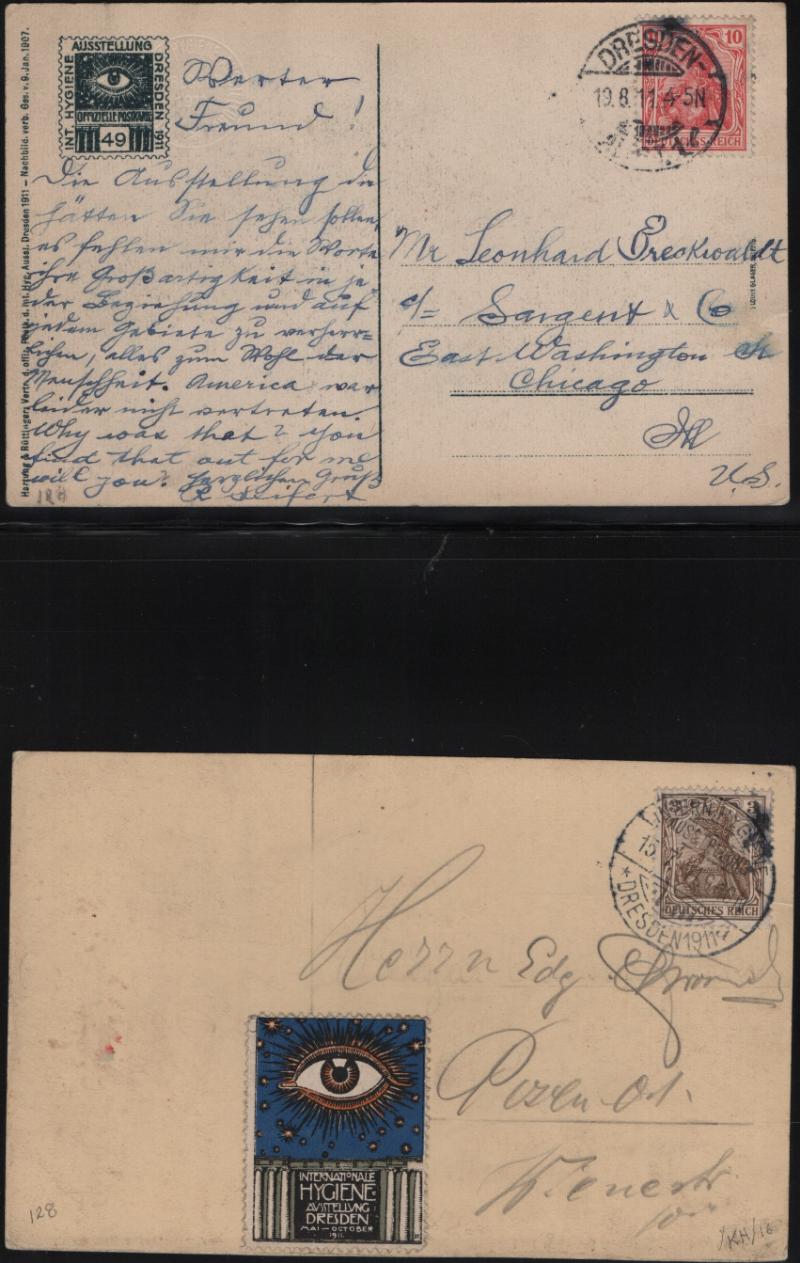 AUSSTELLUNG
INT. HYGIENE
DRESDEN 1911
OFFIZIELLE POSTKARTE
49
Hartung & Rüttinger, Vertr. d. offiz. Postk. d. Int. Hyg. Ausst. Dresden 1911 – Nachbild. verb. Ges. v. 9. Jan. 1907.
Werter
Freund!
Die Ausstellung die
hätten Sie sehen sollen,
es fehlen mir die Worte
ihre Großartigkeit in je-
der Beziehung und auf
jedem Gebiete zu verherr-
lichen, alles zum Wohl der
Menschheit. America war
leider nicht vertreten.
Why was that? You
find that out for me
will you? Herzlichen Gruß
R Seifert
128
10
DEUTSCHES REICH
DRESDEN-
19.8.11.4-5N
Mr Leonhard Breckwaldt
c/= Sargent & Co
East Washington
Chicago
Ill
U.S.
3
DEUTSCHES REICH
INTERN. HYGIENE
AUSSTELLUNG
15.7
* DRESDEN 1911 *
Herrn Edg.
INTERNATIONALE
HYGIENE-
AUSSTELLUNG
DRESDEN
MAI–OCTOBER
1911
128
/KH/16